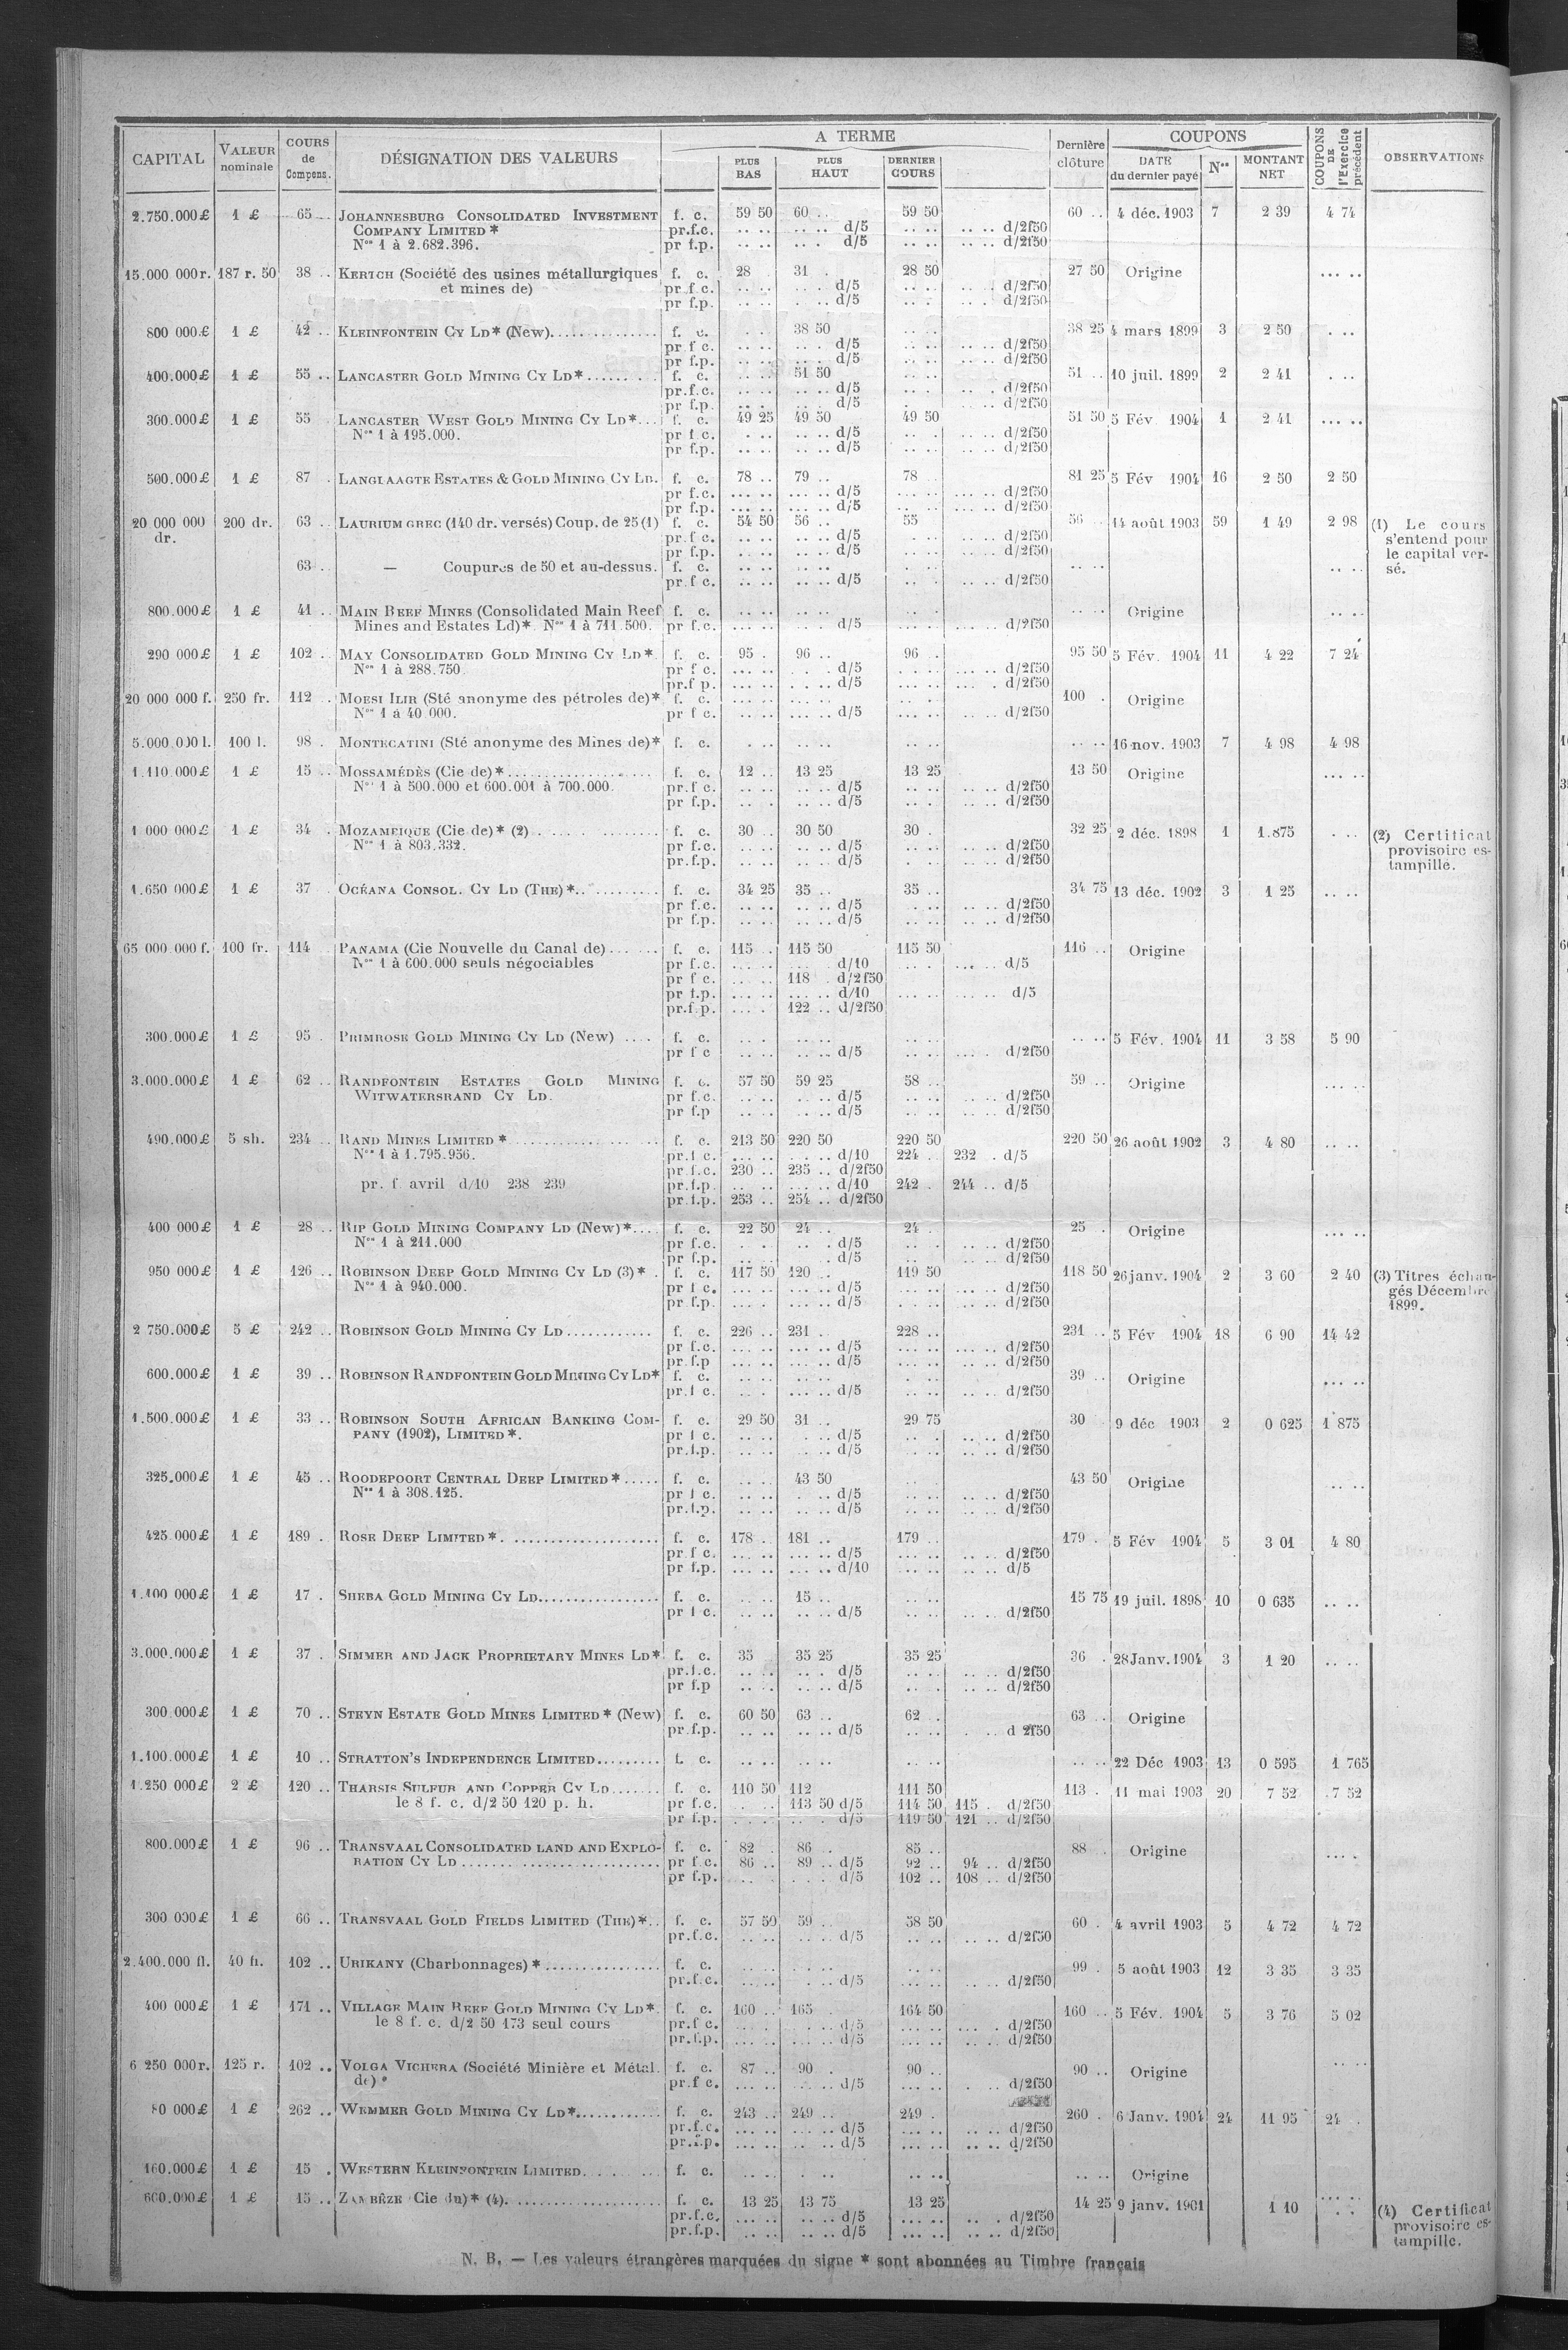 CAPITAL VALEUR nominale COURS de Compens. DÉSIGNATION DES VALEURS A TERME PLUS BAS PLUS HAUT DERNIER COURS Dernière clôture COUPONS DATE du dernier payé Nos MONTANT NET COUPONS DE l'Exercice précédent OBSERVATIONS
2.750.000£ 1 £ 65 .. JOHANNESBURG CONSOLIDATED INVESTMENT f. c. 59 50 60 .. 59 50 60 .. 4 déc. 1903 7 2 39 4 74
COMPANY LIMITED * pr.f.c. .. .. .. .. d/5 .. .. .. .. d/2f50
Nos 1 à 2.682.396. pr f.p. .. .. .. . d/5 .. .. .. .. d/2f50
15.000 000r. 187 r. 50 38 .. KERTCH (Société des usines métallurgiques f. c. 28 31 . 28 50 27 50 Origine ... ..
et mines de) pr f c. .. .. . .. d/5 .. .. .. . d/2f50
pr f.p. .. .. . .. d/5 .. . .. .. d/2f50
800 000.£ 1 £ 42 .. KLEINFONTEIN CY LD* (New).............. f. c. . . 38 50 .. .. 38 25 4 mars 1899 3 2 50 . ..
pr f c. .. .. .. . d/5 .. .. .. .. d/2f50
pr f.p. .. .. .. d/5 .. .. .. .. d/2f50
400.000£ 1 £ 55 .. LANCASTER GOLD MINING CY LD*......... f. c. .. .. 51 50 .. .. 51 .. 10 juil. 1899 2 2 41 . ..
pr.f.c. .. .. .. .. d/5 .. .. .. . d/2f50
pr f.p. .. .. .. .. d/5 . .. .. d/2f50
300.000£ 1 £ 55 LANCASTER WEST GOLD MINING CY LD*... f. c. 49 25 49 50 49 50 51 50 5 Fév 1904 1 2 41 ... ..
Nos 1 à 195.000. pr f c. . .. .. .. d/5 .. . .. .. d/2f50
pr f.p. .. .. .. .. d/5 .. .. .. .. d/2f50
500.000£ 1 £ 87 . LANGLAAGTE ESTATES & GOLD MINING CY LD. f. c. 78 .. 79 .. 78 81 25 5 Fév 1904 16 2 50 2 50
pr f.c. ... .. ... .. d/5 ... .. ... .. d/2f50
pr f.p. ... .. ... .. d/5 ... .. ... .. d/2f50
20 000 000 200 dr. 63 .. LAURIUM GREC (140 dr. versés) Coup. de 25 (1) f. c. 54 50 56 .. 55 56 .. 14 août 1903 59 1 49 2 98 (1) Le cours
dr. pr.f c. .. .. .. .. d/5 . .. .. .. d/2f50 s'entend pour
pr f.p. .. .. .. .. d/5 .. .. .. .. d/2f50 le capital ver-
63 .. — Coupures de 50 et au-dessus. f. c. .. .. .. .. .. .. .. .. .. .. sé.
pr.f c. .. .. .. .. d/5 .. . .. .. d/2f50
800.000£ 1 £ 41 .. MAIN REEF MINES (Consolidated Main Reef f. c. .. .. .. .. .. . .. .. Origine .. ..
Mines and Estates Ld)*. Nos 1 à 711.500. pr f.c. ... .. ... .. d/5 ... . ... .. d/2f50
290 000£ 1 £ 102 .. MAY CONSOLIDATED GOLD MINING CY LD*. f. c. 95 . 96 .. 96 . 95 50 5 Fév. 1904 11 4 22 7 24
Nos 1 à 288.750. pr f c. ... .. . . d/5 ... .. ... .. d/2f50
pr.f p. ... .. . .. d/5 ... .. ... . d/2f50
20 000 000 f. 250 fr. 112 .. MOESI ILIR (Sté anonyme des pétroles de)* f. c. ... .. ... .. ... .. 100 . Origine
Nos 1 à 40 000. pr f c. .. .. ... .. d/5 ... .. .. .. d/2f50
5.000.000 l. 100 l. 98 . MONTECATINI (Sté anonyme des Mines de)* f. c. . .. .. .. .. .. .. .. 16 nov. 1903 7 4 98 4 98
1.110.000£ 1 £ 15 .. MOSSAMÉDÈS (Cie de)*................ f. c. 12 .. 13 25 13 25 13 50 Origine ... ..
Nos 1 à 500.000 et 600.001 à 700.000. pr.f c. .. .. .. .. d/5 .. . .. .. d/2f50
pr f.p. .. . .. .. d/5 .. .. .. .. d/2f50
1 000 000£ 1 £ 34 . MOZAMBIQUE (Cie de)* (2)............ f. c. 30 .. 30 50 30 . 32 25 2 déc. 1898 1 1.875 . .. (2) Certificat
Nos 1 à 803.332. pr f.c. .. .. .. .. d/5 .. .. .. .. d/2f50 provisoire es-
pr.f.p. .. .. .. .. d/5 . .. .. .. d/2f50 tampillé.
1.650 000£ 1 £ 37 . OCÉANA CONSOL. CY LD (THE)*.......... f. c. 34 25 35 .. 35 .. 34 75 13 déc. 1902 3 1 25 .. ..
pr f.c. .. .. .. .. d/5 . .. .. .. d/2f50
pr f.p. .. .. .. .. d/5 .. .. .. .. d/2f50
65 000 000 f. 100 fr. 114 PANAMA (Cie Nouvelle du Canal de)...... f. c. 115 . 115 50 115 50 116 .. Origine
Nos 1 à 600.000 seuls négociables pr f.c. ... .. ... . d/10 .. . ... .. d/5
pr f c. ... .. 118 . d/2f50
pr f.p. ... .. ... .. d/10 ... .. ... .. d/5
pr.f.p. ... . 122 .. d/2f50
300.000£ 1 £ 95 . PRIMROSE GOLD MINING CY LD (New) .... f. c. .. . .. .. .. .. .. .. 5 Fév. 1904 11 3 58 5 90
pr f c .. .. .. .. d/5 .. .. ... . d/2f50
3.000.000£ 1 £ 62 .. RANDFONTEIN ESTATES GOLD MINING f. c. 57 50 59 25 58 .. 59 .. Origine ... ..
WITWATERSRAND CY LD. pr f.c. .. .. . .. d/5 .. .. .. .. d/2f50
pr f.p .. .. .. .. d/5 .. .. .. .. d/2f50
490.000£ 5 sh. 234 .. RAND MINES LIMITED*............... f. c. 213 50 220 50 220 50 220 50 26 août 1902 3 4 80 .. ..
Nos 1 à 1.795.956. pr.f c. ... .. . .. d/10 224 . 232 . d/5
pr.f.c. 230 .. 235 .. d/2f50
pr. f. avril d/10 238 239 pr.f.p. .. .. ... .. d/10 242 . 244 .. d/5
pr.f.p. 253 .. 254 .. d/2f50
400 000£ 1 £ 28 .. RIP GOLD MINING COMPANY LD (New)*.... f. c. 22 50 24 .. 24 . 25 . Origine ... ..
Nos 1 à 211.000 pr f.c. . . .. . d/5 .. . .. .. d/2f50
pr f.p. .. .. . d/5 .. .. .. .. d/2f50
950 000£ 1 £ 126 .. ROBINSON DEEP GOLD MINING CY LD (3)* . f. c. 117 50 120 .. 119 50 118 50 26 janv. 1904 2 3 60 2 40 (3) Titres échan-
Nos 1 à 940.000. pr f c. ... .. .. .. d/5 .. .. .. .. d/2f50 gés Décembre
pr f.p. ... . .. .. d/5 . .. .. .. d/2f50 1899.
2 750.000£ 5 £ 242 .. ROBINSON GOLD MINING CY LD............ f. c. 226 .. 231 . 228 .. 231 .. 5 Fév 1904 18 6 90 14 42
pr f.c. ... .. ... .. d/5 ... .. ... .. d/2f50
pr.f.p ... .. ... .. d/5 ... .. .. .. d/2f50
600.000£ 1 £ 39 .. ROBINSON RANDFONTEIN GOLD MINING CY LD* f. c. .. .. .. .. . .. 39 .. Origine ... ..
pr.f c. .. . ... .. d/5 .. .. .. .. d/2f50
1.500.000£ 1 £ 33 .. ROBINSON SOUTH AFRICAN BANKING COM- f. c. 29 50 31 .. 29 75 30 9 déc 1903 2 0 625 1 875
PANY (1902), LIMITED*. pr f c. .. .. . .. d/5 .. . .. .. d/2f50
pr.f.p. .. .. . .. d/5 .. .. .. .. d/2f50
325.000£ 1 £ 45 .. ROODEPOORT CENTRAL DEEP LIMITED*..... f. c. .. .. 43 50 .. .. 43 50 Origine .. ..
Nos 1 à 308.125. pr f c. .. .. . .. d/5 .. .. .. .. d/2f50
pr.f.p. .. .. .. .. d/5 .. .. .. .. d/2f50
425.000£ 1 £ 189 . ROSE DEEP LIMITED*. ................... f. c. 178 . 181 .. 179 .. 179 . 5 Fév 1904 5 3 01 4 80
pr.f c. ... .. ... .. d/5 ... .. .. .. d/2f50
pr f.p. ... .. ... .. d/10 ... .. .. .. d/5
1.100 000£ 1 £ 17 . SHEBA GOLD MINING CY LD................. f. c. .. .. 15 .. .. .. 15 75 19 juil. 1898 10 0 635 .. ..
pr f c. .. .. .. .. d/5 .. .. .. .. d/2f50
3.000.000£ 1 £ 37 . SIMMER AND JACK PROPRIETARY MINES LD* f. c. 35 35 25 35 25 36 . 28 Janv. 1904 3 1 20 .. ..
pr.f.c. .. .. .. . d/5 .. .. .. .. d/2f50
pr f.p .. .. .. .. d/5 .. .. .. .. d/2f50
300.000£ 1 £ 70 .. STEYN ESTATE GOLD MINES LIMITED* (New) f. c. 60 50 63 .. 62 .. 63 .. Origine
pr.f.p. .. .. .. .. d/5 .. .. . .. d 2f50
1.100.000£ 1 £ 10 .. STRATTON'S INDEPENDENCE LIMITED......... f. c. .. .. .. .. .. .. .. .. 22 Déc 1903 13 0 595 1 765
1.250 000£ 2 £ 120 .. THARSIS SULFUR AND COPPER CY LD....... f. c. 110 50 112 111 50 113 . 11 mai 1903 20 7 52 7 52
le 8 f. c. d/2 50 120 p. h. pr f.c. .. .. 113 50 d/5 114 50 115 . d/2f50
pr f.p. . .. .. . d/5 119 50 121 .. d/2f50
800.000£ 1 £ 96 .. TRANSVAAL CONSOLIDATED LAND AND EXPLO- f. c. 82 . 86 . 85 .. 88 . Origine ... .
RATION CY LD............................ pr f.c. 86 .. 89 .. d/5 92 .. 94 .. d/2f50
pr f.p. .. . . .. d/5 102 .. 108 .. d/2f50
300 000£ 1 £ 66 .. TRANSVAAL GOLD FIELDS LIMITED (THE)*.. f. c. 57 50 59 .. 58 50 60 . 4 avril 1903 5 4 72 4 72
pr.f.c. .. .. .. .. d/5 .. .. .. .. d/2f50
2.400.000 fl. 40 fl. 102 .. URIKANY (Charbonnages)*................ f. c. .. .. .. .. .. .. 99 . 5 août 1903 12 3 35 3 35
pr.f.c. ... .. . .. d/5 ... .. .. . d/2f50
400 000£ 1 £ 171 .. VILLAGE MAIN REEF GOLD MINING CY LD*. f. c. 160 .. 165 . 164 50 160 .. 5 Fév. 1904 5 3 76 5 02
le 8 f. c. d/2 50 173 seul cours pr.f c. ... . . .. d/5 ... .. ... . d/2f50
pr.f.p. ... .. ... .. d/5 ... .. .. .. d/2f50
6 250 000r. 125 r. 102 .. VOLGA VICHERA (Société Minière et Métal. f. c. 87 .. 90 . 90 .. 90 .. Origine .. ..
de)* pr.f c. ... .. .. .. d/5 ... .. . .. d/2f50
80 000£ 1 £ 262 .. WEMMER GOLD MINING CY LD*............ f. c. 243 .. 249 .. 249 . 260 . 6 Janv. 1904 24 11 95 24 .
pr.f.c. ... .. ... .. d/5 ... .. .. .. d/2f50
pr.f.p. ... .. .. .. d/5 ... .. .. .. d/2f50
160.000£ 1 £ 15 . WESTERN KLEINFONTEIN LIMITED.......... f. c. .. .. . .. .. .. .. .. Origine
600.000£ 1 £ 15 .. ZAMBÈZE (Cie du)* (4)..................... f. c. 13 25 13 75 13 25 14 25 9 janv. 1901 1 10 .. .. (4) Certificat
pr.f.c. ... .. .. .. d/5 ... .. .. . d/2f50 provisoire es-
pr.f.p. .. .. .. .. d/5 ... .. .. .. d/2f50 tampillé.
N. B. — Les valeurs étrangères marquées du signe * sont abonnées au Timbre français